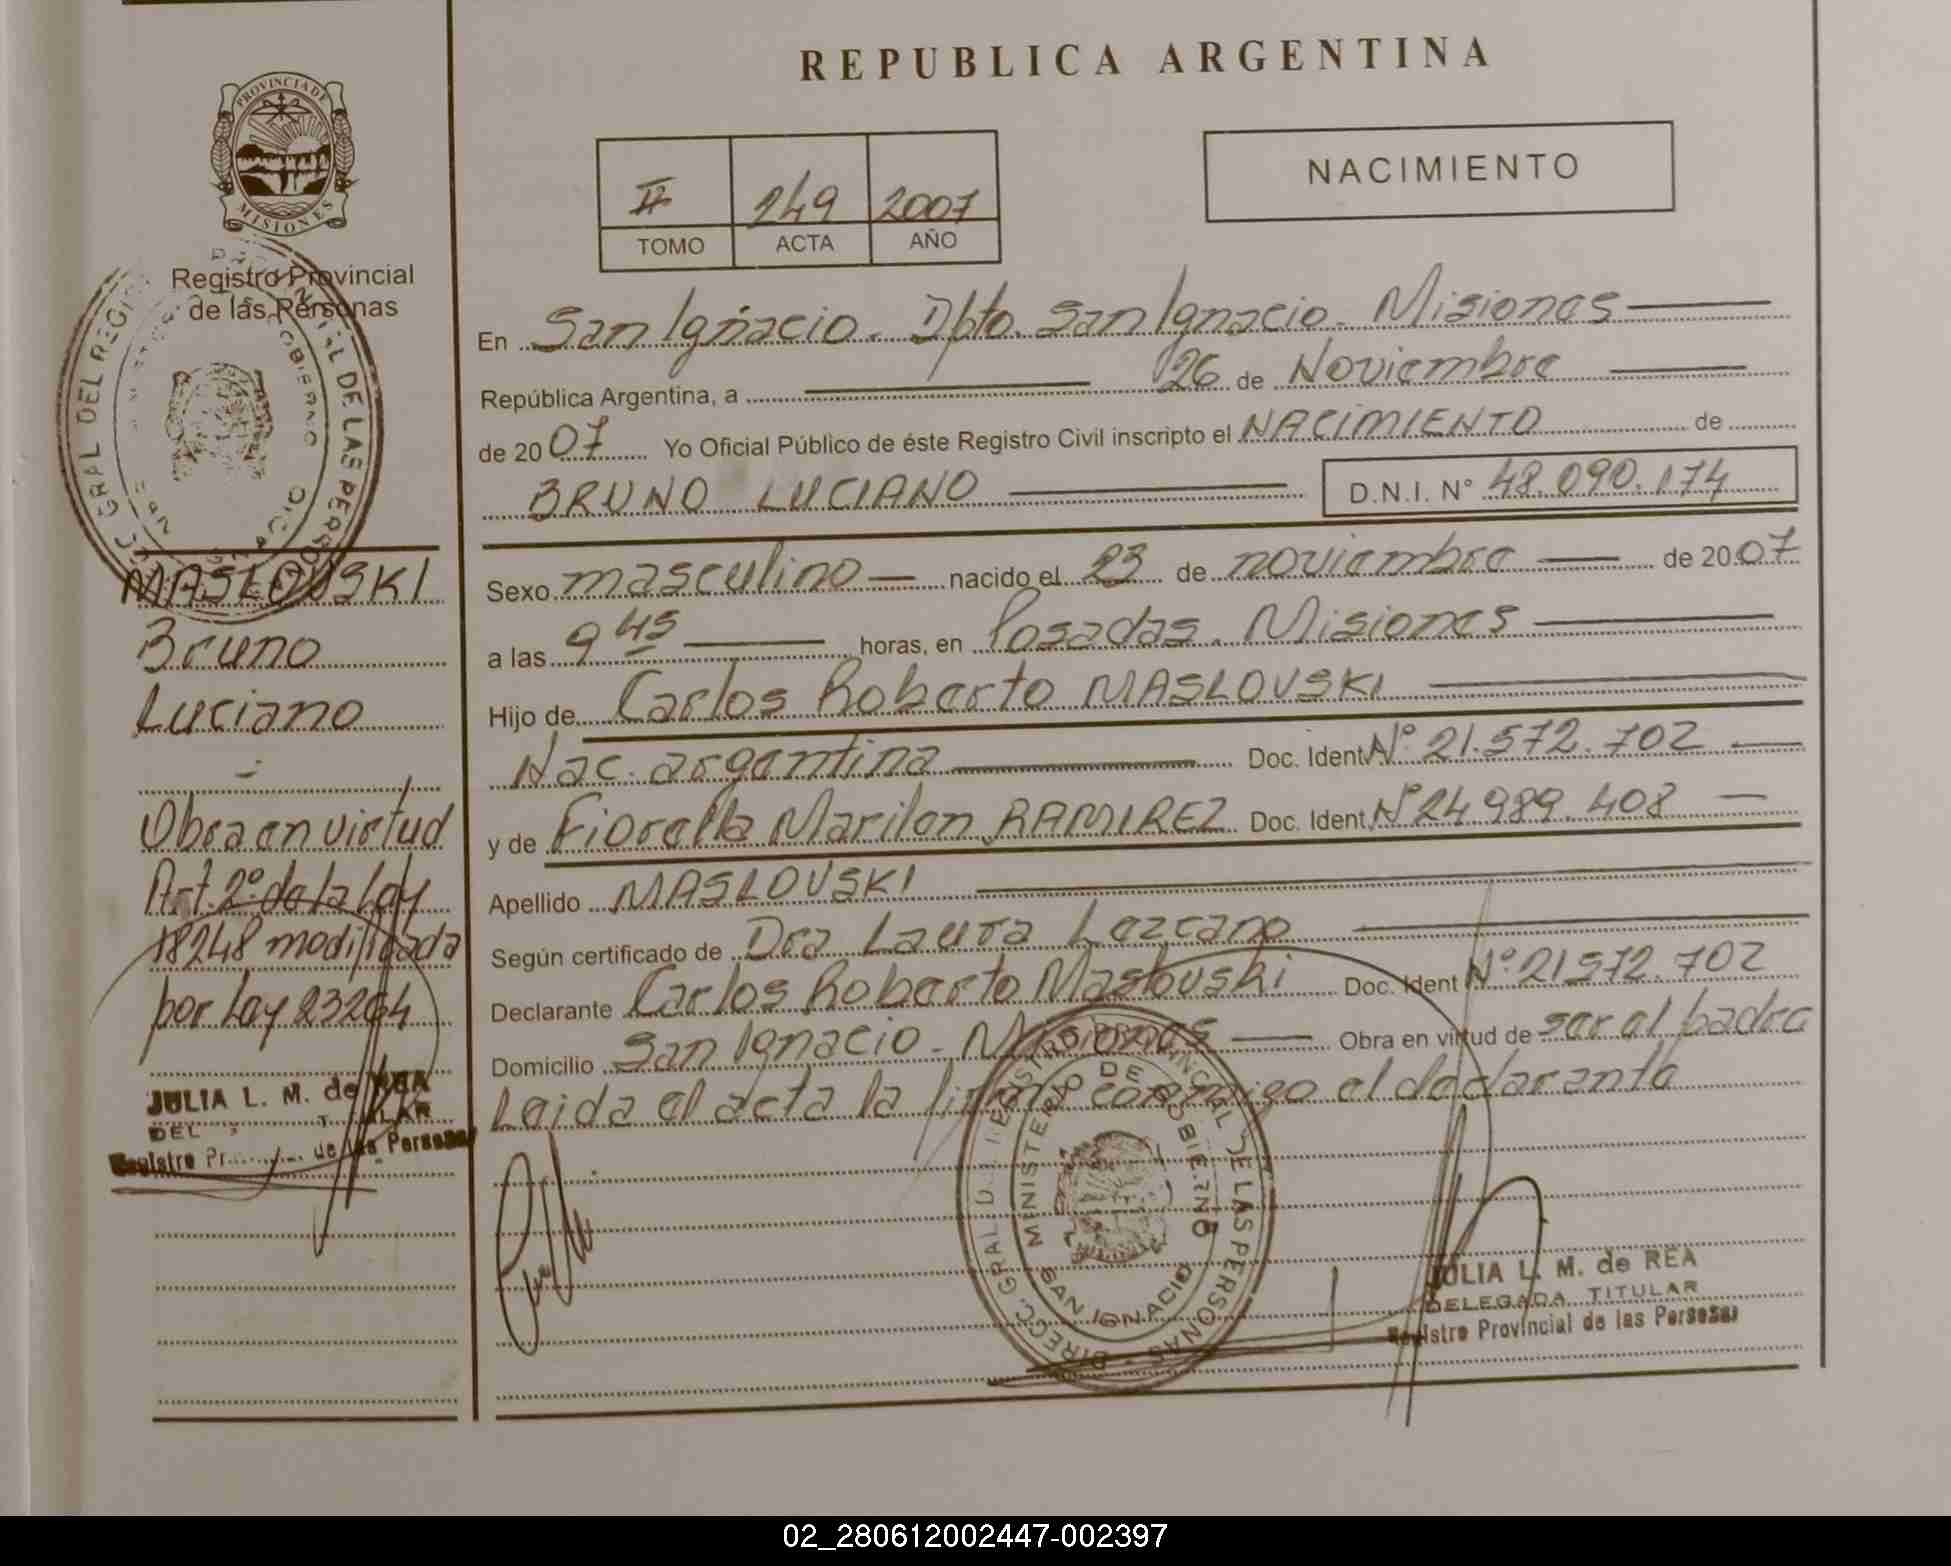 REPUBLICA ARGENTINA
PROVINCIA DE
MISIONES
Registro Provincial
de las Personas
II 249 2007
TOMO ACTA AÑO
NACIMIENTO
En San Ignacio. Dpto. San Ignacio. Misiones
República Argentina, a 26 de Noviembre
de 2007 Yo Oficial Público de éste Registro Civil inscripto el NACIMIENTO de
BRUNO LUCIANO D.N.I. N° 48.090.174
Sexo masculino nacido el 23 de noviembre de 2007
a las 9 45 horas, en Posadas. Misiones
Hijo de Carlos Roberto MASLOVSKI
Nac. argentina Doc. Ident N° 21.572.702
y de Fiorella Marilen RAMIREZ Doc. Ident N° 24.989.408
Apellido MASLOVSKI
Según certificado de Dra Laura Lezcano
Declarante Carlos Roberto Maslovski Doc. Ident N° 21572.702
Domicilio San Ignacio - Misiones Obra en virtud de ser el padre
Leida el acta la firma conmigo el declarante
MASLOVSKI
Bruno
Luciano
Obra en virtud
Art. 2° de la Ley
18248 modificada
por Ley 23264
JULIA L. M. de REA
DEL
Registro de las Personas
DIRECC. GRAL DEL REGISTRO PROVINCIAL DE LAS PERSONAS
MINISTERIO DE GOBIERNO
SAN IGNACIO
JULIA L. M. de REA
DELEGADA TITULAR
Registro Provincial de las Personas
02_280612002447-002397